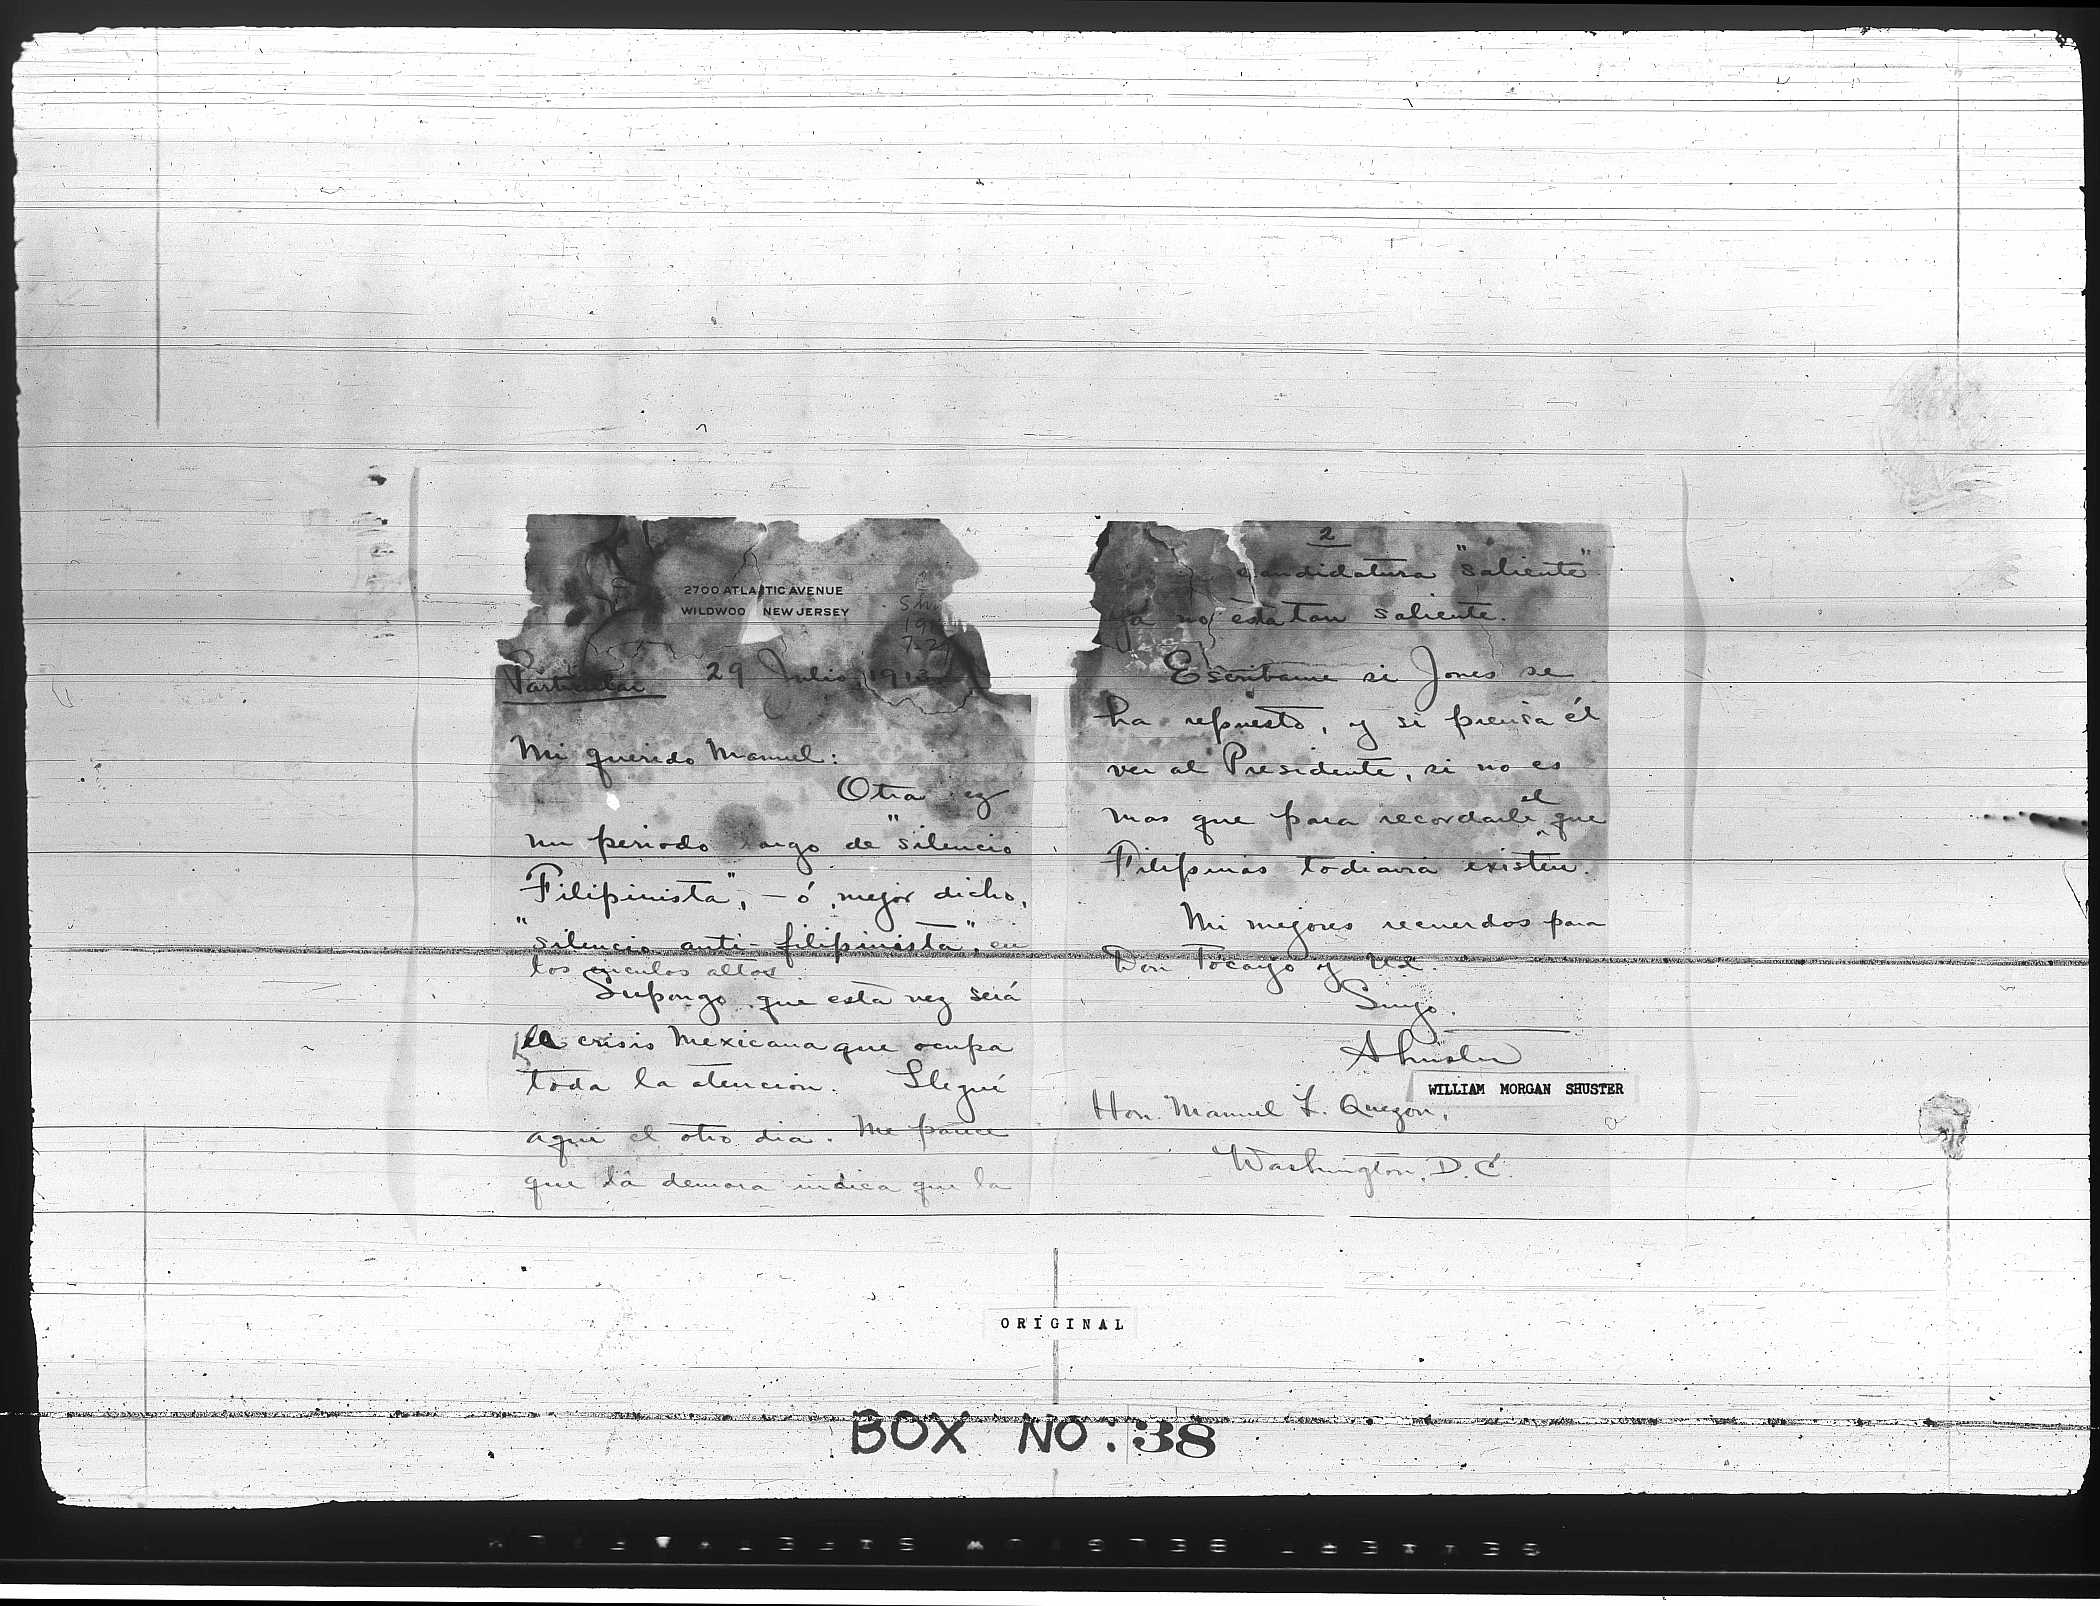 2700 ATLANTIC AVENUE
WILDWOO NEW JERSEY
Particular 29 Julio, 1913
Mi querido Manuel:
Otra ez
un periodo largo de "silencio
Filipinista", – ó, mejor dicho,
"silencio anti-filipinista", en
los circulos altos
Supongo que esta vez será
la crisis Mexicana que ocupa
toda la atencion. Llegué
aqui el otro dia. Me parece
que la demora indica que la
2
candidatura "saliente"
ya no esta tan saliente.
Escribame si Jones se
ha repuesto, y si piensa él
ver al Presidente, si no es
mas que para recordarle el que
Filipinas todiavia existen.
Mi mejores recuerdos para
Don Tocayo y Ud.
Suyo.
Shuster
WILLIAM MORGAN SHUSTER
Hon. Manuel L. Quezon,
Washington, D.C.
ORIGINAL
BOX NO: 38